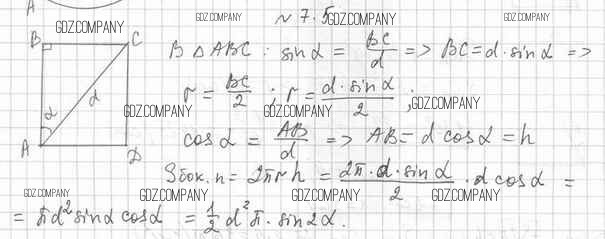 A
GDZ.COMPANY GDZ.COMPANY № 7.5 GDZ.COMPANY GDZ.COMPANY
B C
В △ ABC : sin α = BC/d => BC = d · sin α =>
α d
r = BC/2 ; r = d · sin α/2 ;
GDZ.COMPANY GDZ.COMPANY GDZ.COMPANY
A D
cos α = AB/d => AB = d cos α = h
Sбок. п = 2πrh = 2π · d · sin α/2 · d cos α =
GDZ.COMPANY GDZ.COMPANY GDZ.COMPANY GDZ.COMPANY
= πd² sin α cos α = 1/2 d² π · sin 2α.